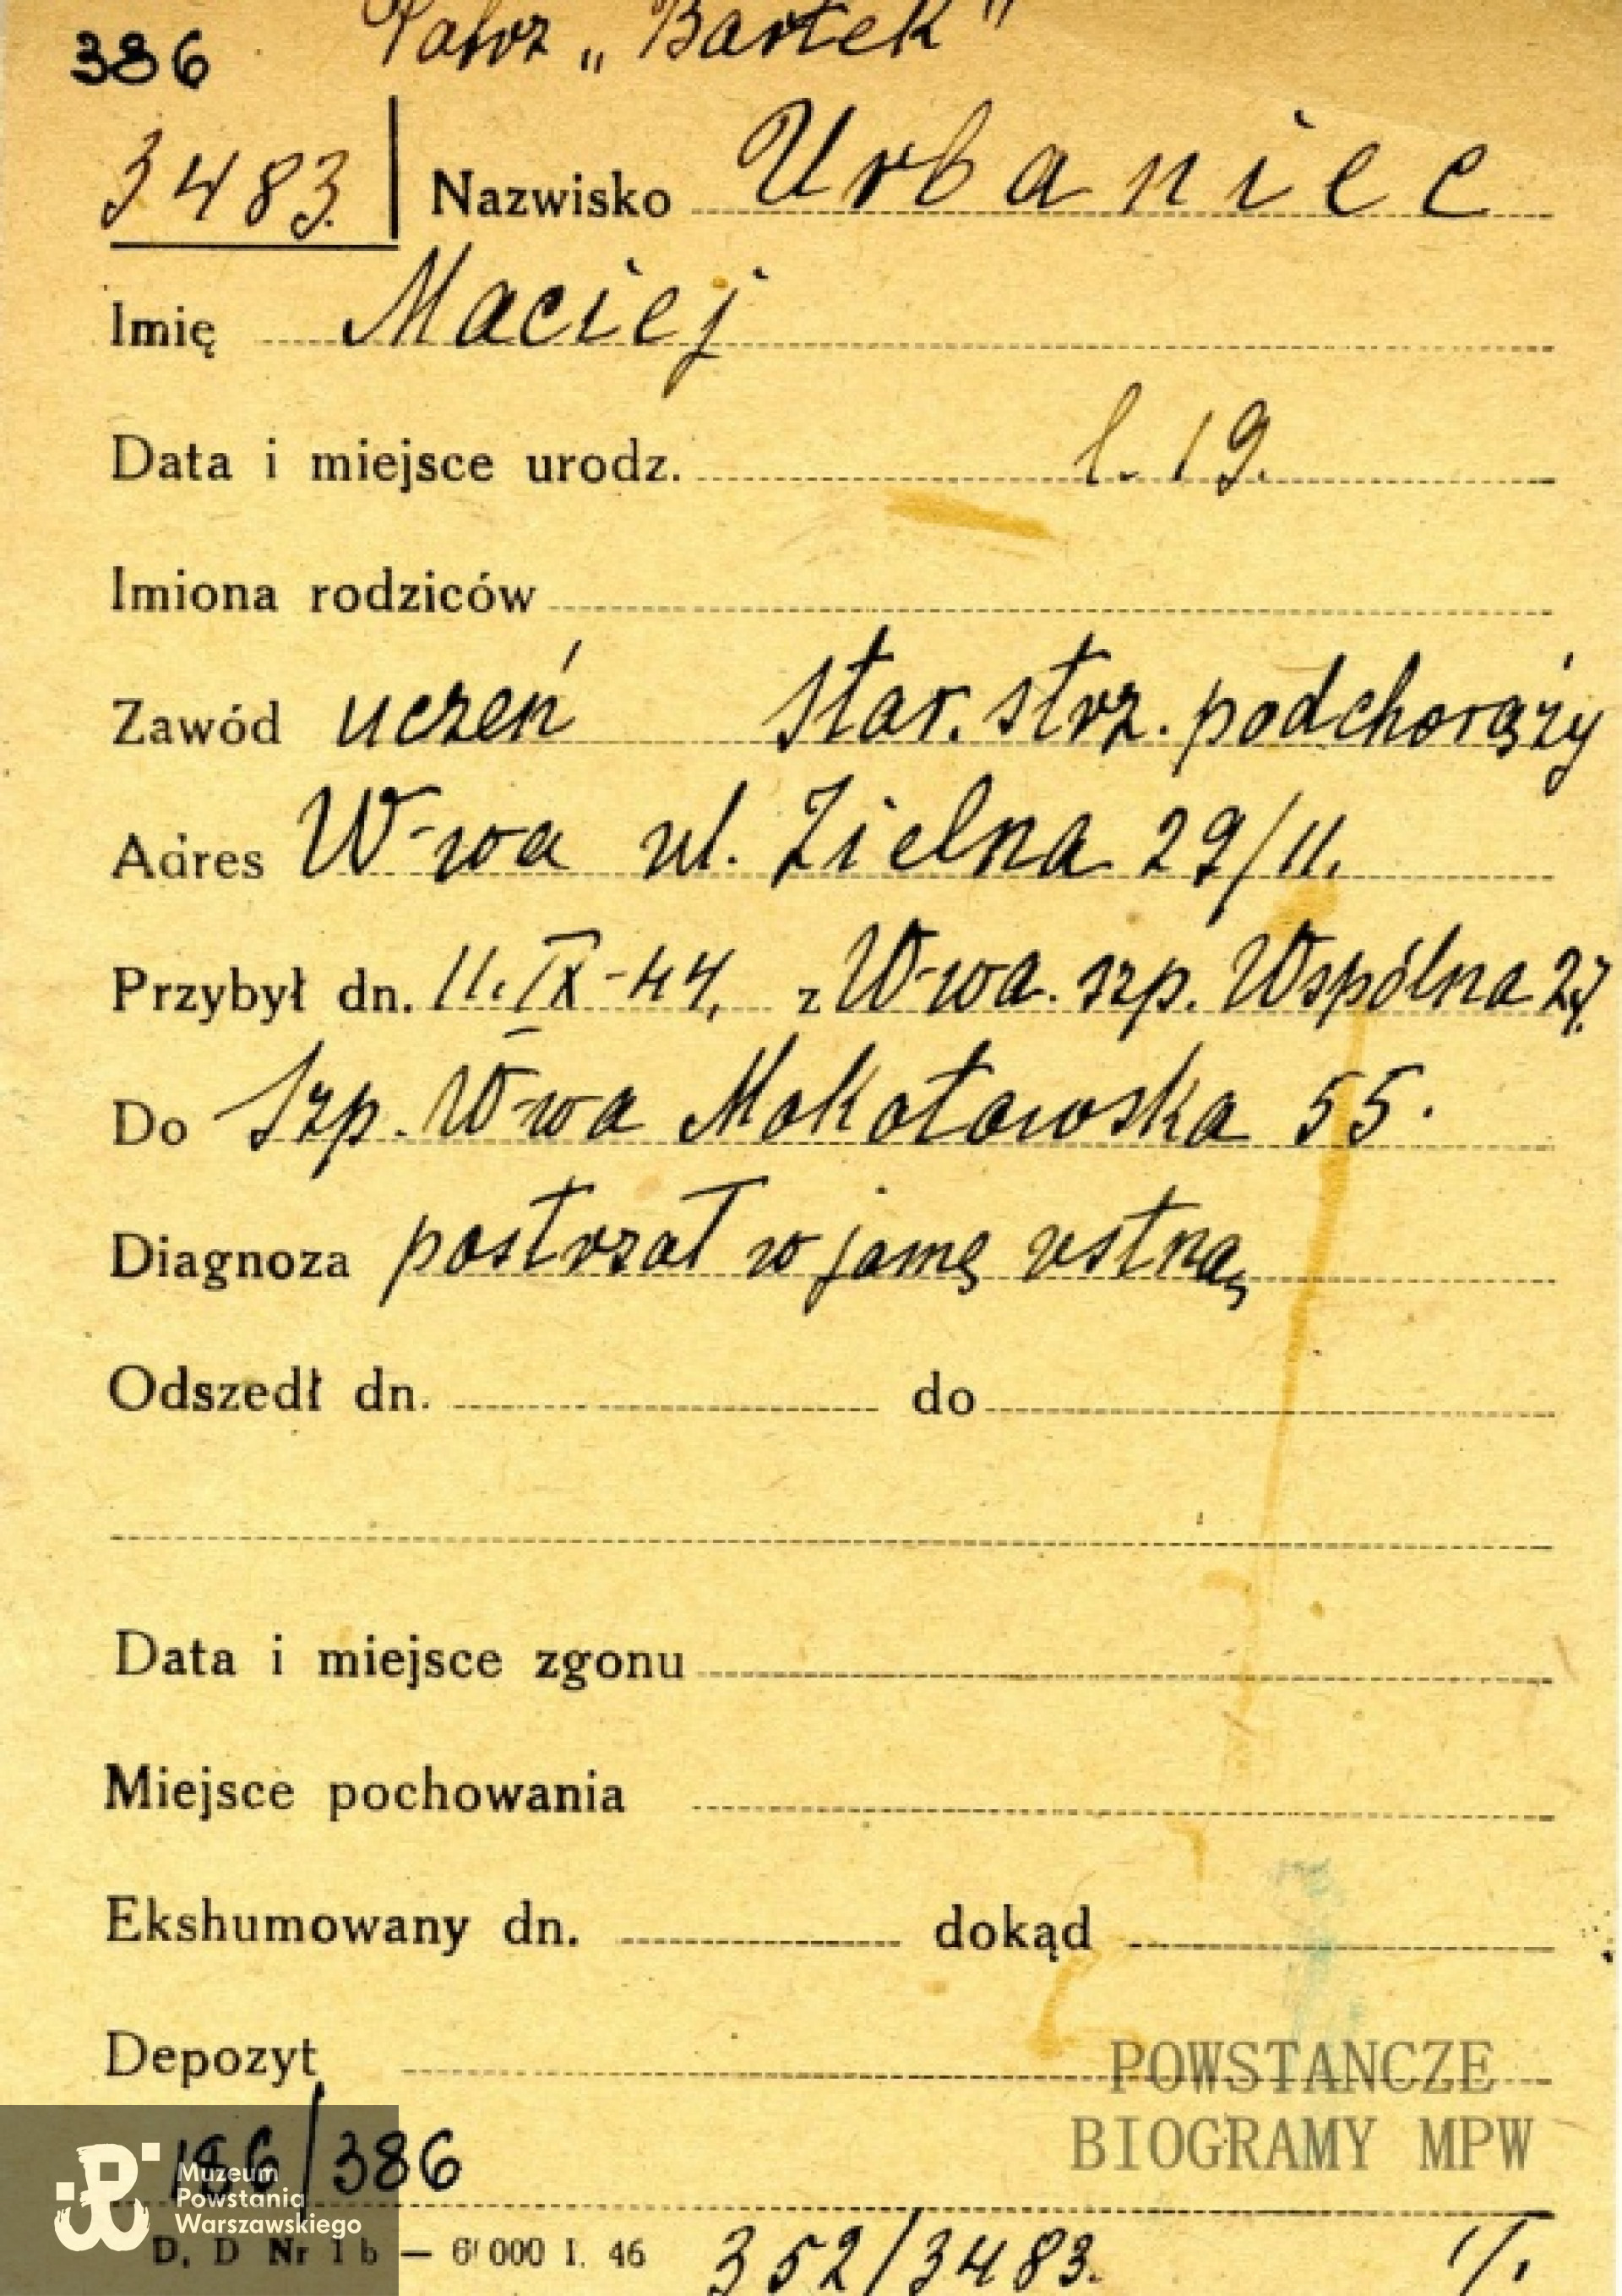 386 "Bartek"
3483. Nazwisko Urbaniec
Imię Maciej
Data i miejsce urodz. l. 19.
Imiona rodziców
Zawód uczeń star. strz. podchorąży
Adres W-wa ul. Zielna 29/11.
Przybył dn. 11. IX-44, z W-wa. szp. Wspólna 27.
Do Szp. W-wa Mokotowska 55.
Diagnoza postrzał w jamę ustną
Odszedł dn. do
Data i miejsce zgonu
Miejsce pochowania
Ekshumowany dn. dokąd
Depozyt
POWSTANCZE
BIOGRAMY MPW
186/386
Muzeum
Powstania
Warszawskiego
D. D Nr 1 b — 6 000 I. 46
352/3483.